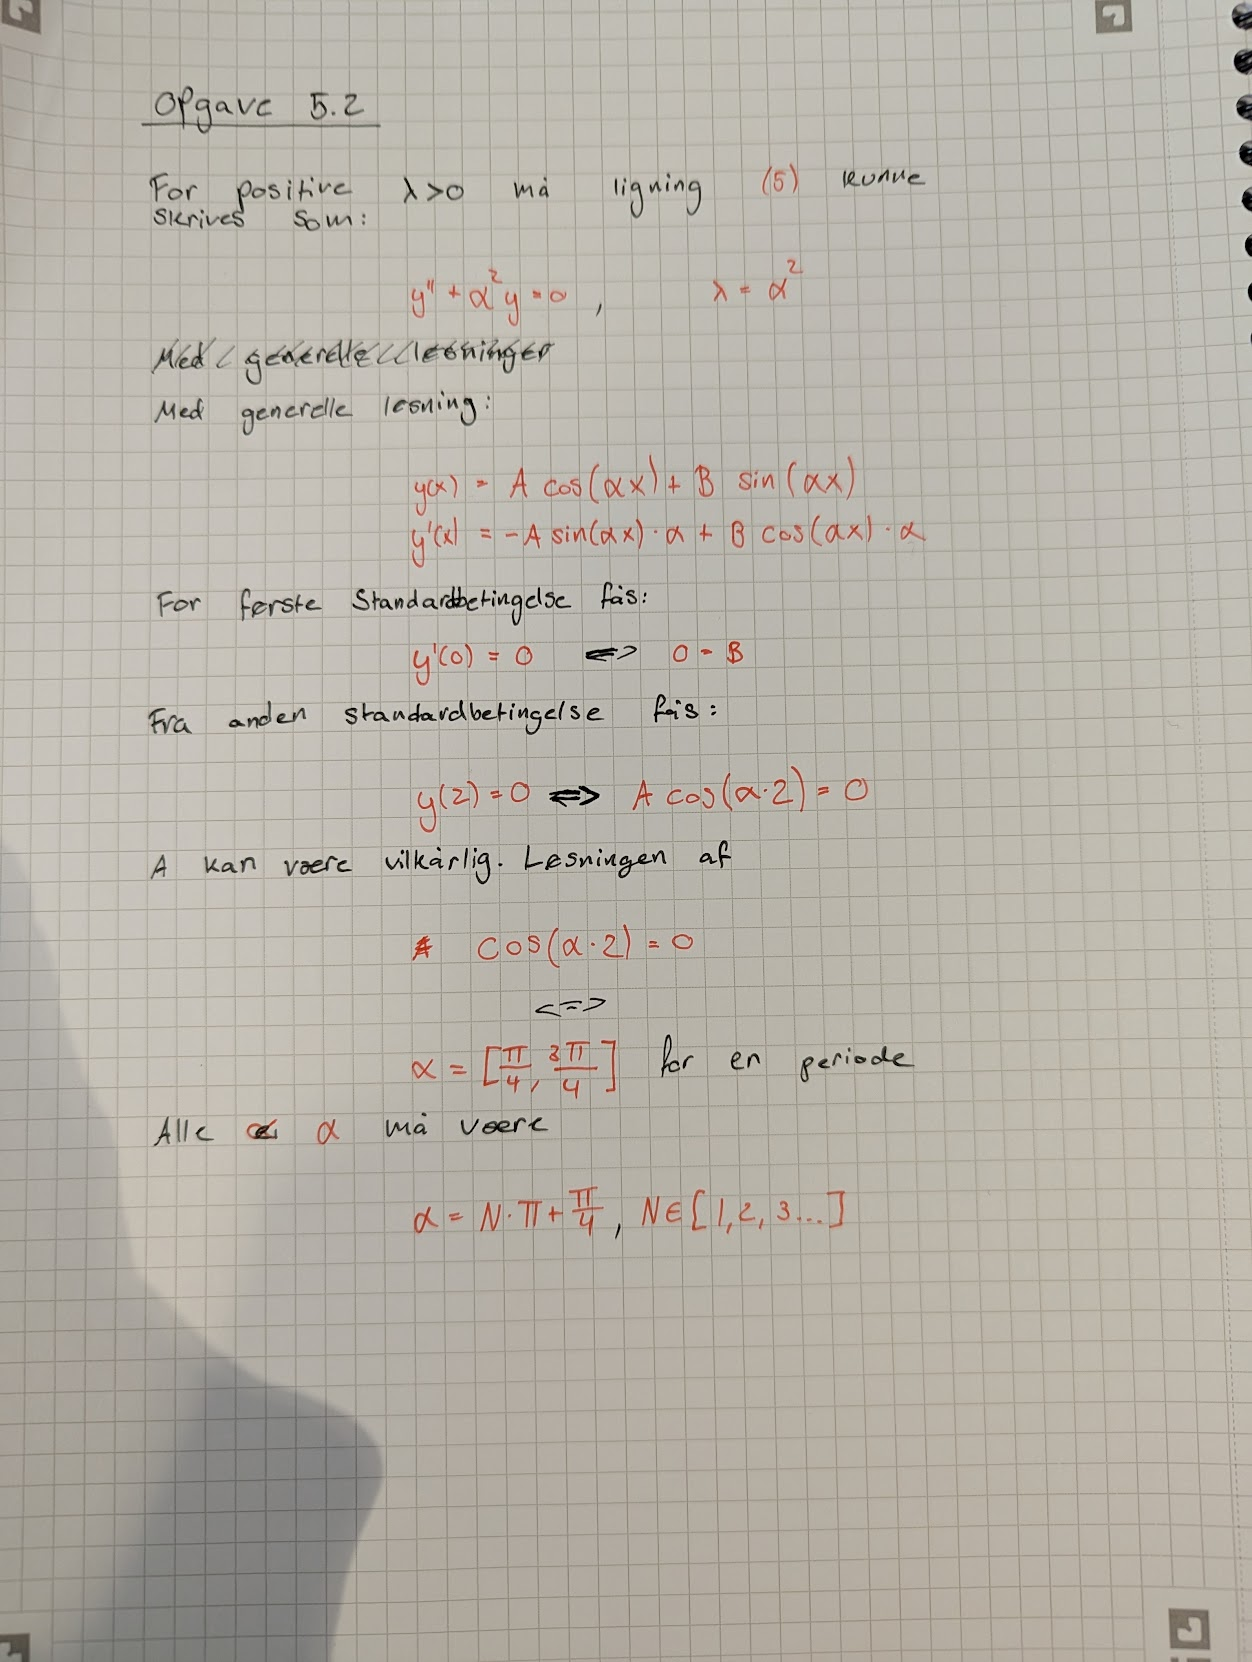 Opgave 5.2
For positive λ>0 må ligning (5) kunne
skrives som:
y'' + α²y = 0 , λ = α²
Med generelle løsninger
Med generelle løsning:
y(x) = A cos(αx) + B sin(αx)
y'(x) = -A sin(αx)·α + B cos(αx)·α
For første Standardbetingelse fås:
y'(0) = 0 <=> 0 = B
Fra anden standardbetingelse fås:
y(2) = 0 <=> A cos(α·2) = 0
A kan være vilkårlig. Løsningen af
cos(α·2) = 0
<=>
α = [π/4, 3π/4] for en periode
Alle α må være
α = N·π + π/4, N∈[1,2,3...]